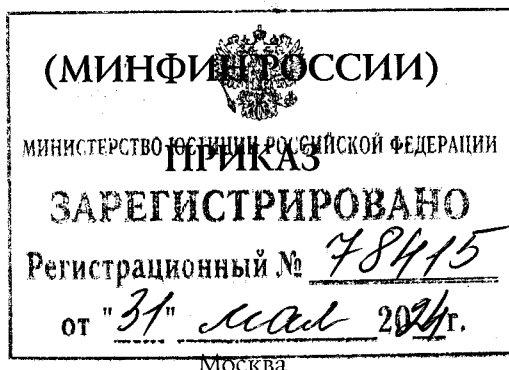 (МИНФИН РОССИИ)
МИНИСТЕРСТВО ЮСТИЦИИ РОССИЙСКОЙ ФЕДЕРАЦИИ
ПРИКАЗ
ЗАРЕГИСТРИРОВАНО
Регистрационный № 78415
от "31" мая 2024г.
Москва